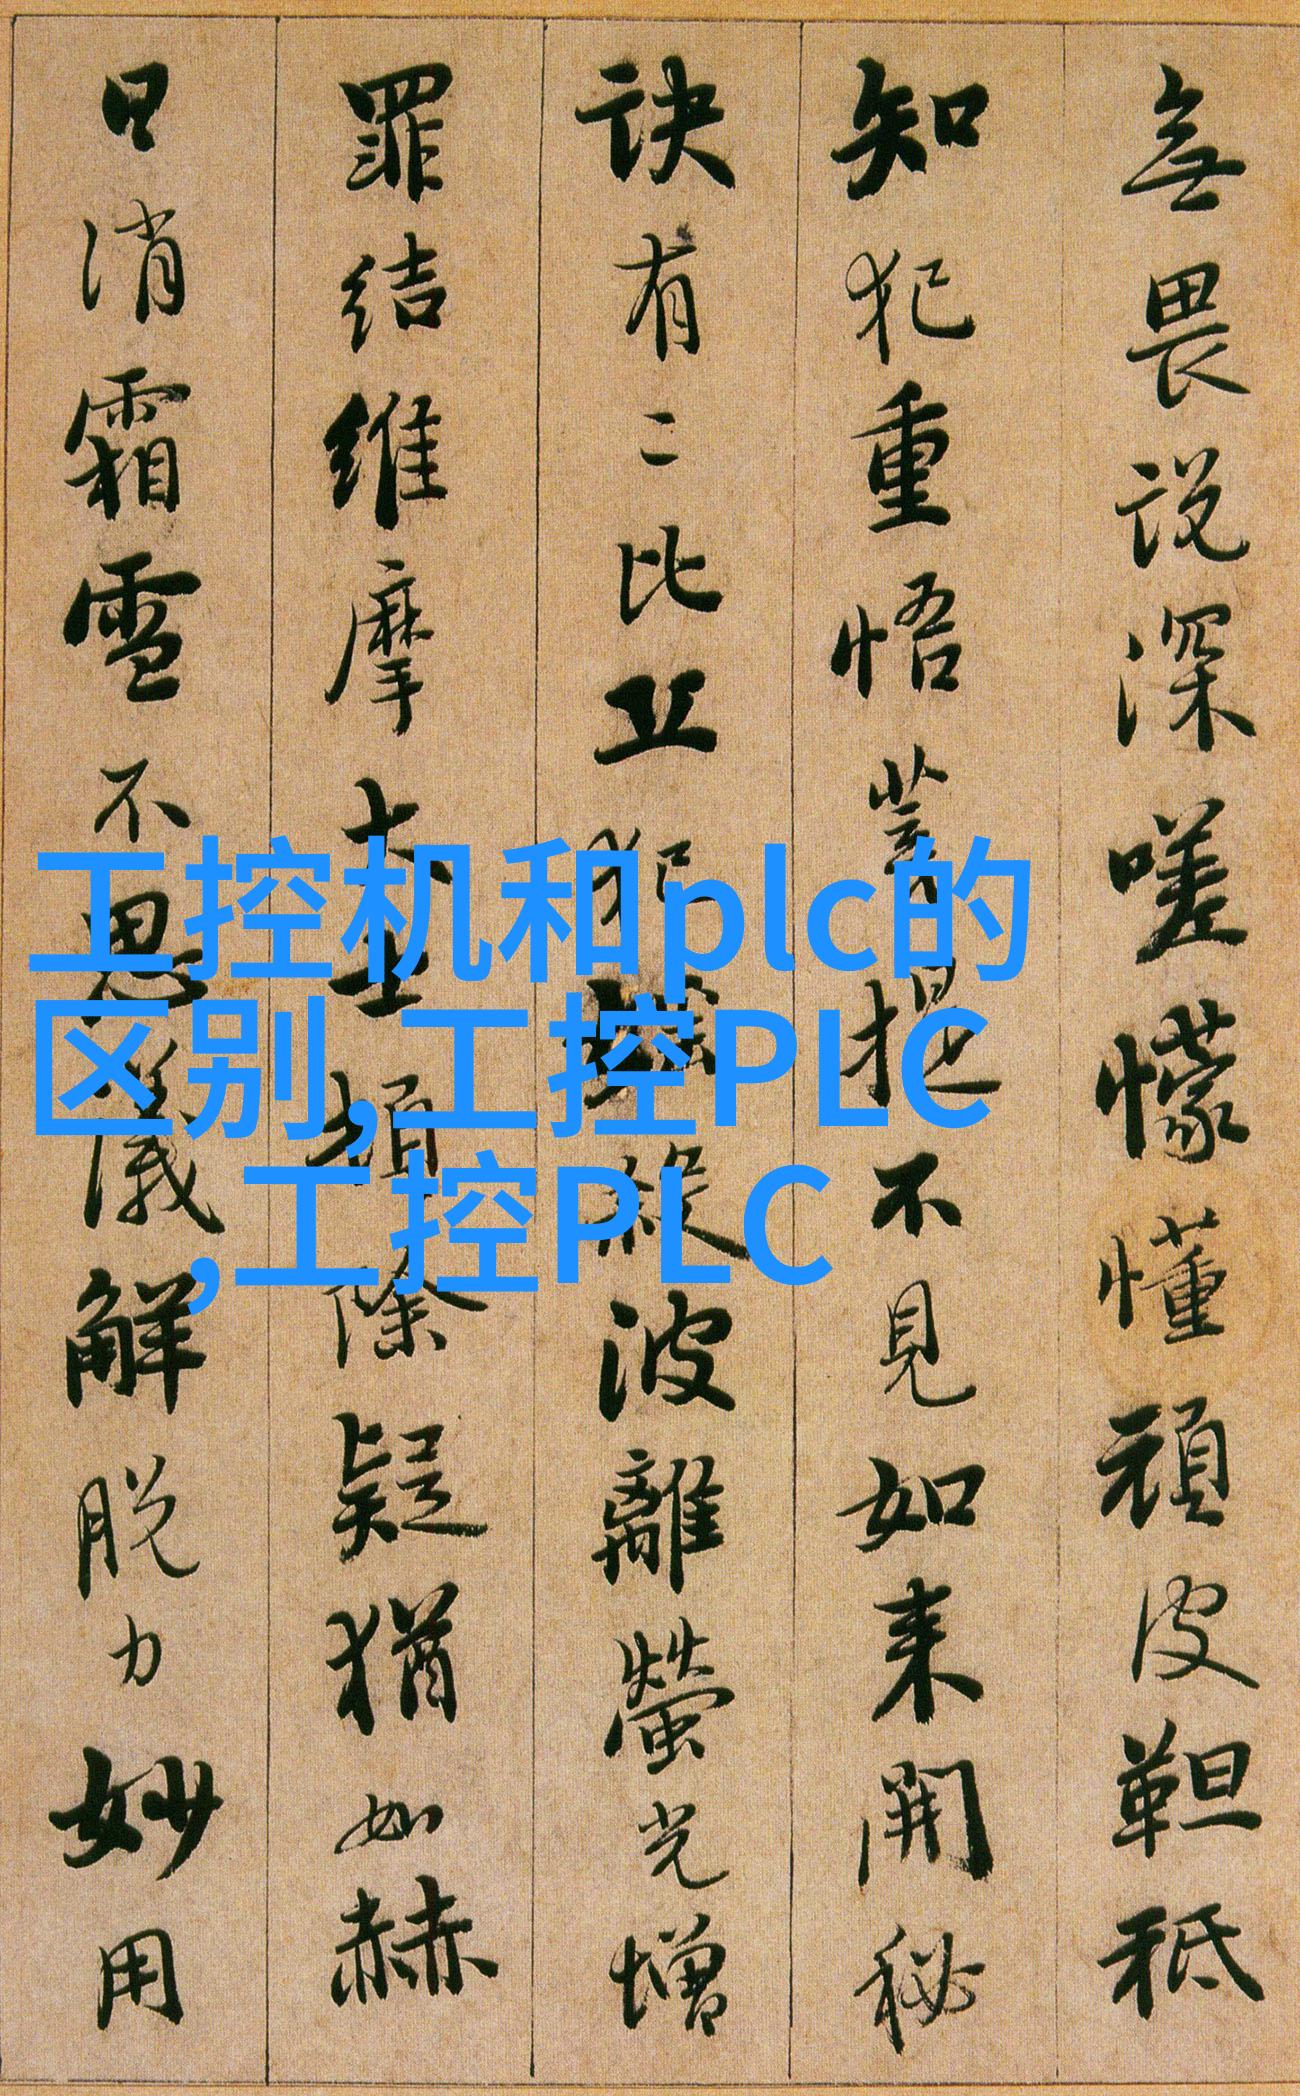 無畏説深嗟懞懂頑皮靼秪
知犯重悟菩提不見如来開秘
訣有二比丘犯婬殺波離螢光增
罪结維摩大士頓除疑猶如赫
日消霜雪不思議解脱力妙用
工控机和plc的
区别,工控PLC
,工控PLC